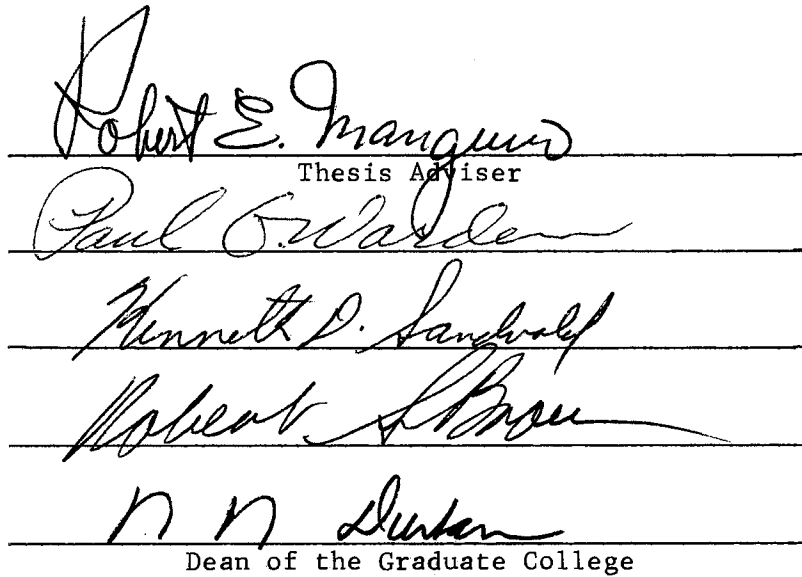 Robert E. Mangum
Thesis Adviser
Paul G. Warden
Kenneth D. Sandvold
Robert S Brown
N N Durham
Dean of the Graduate College